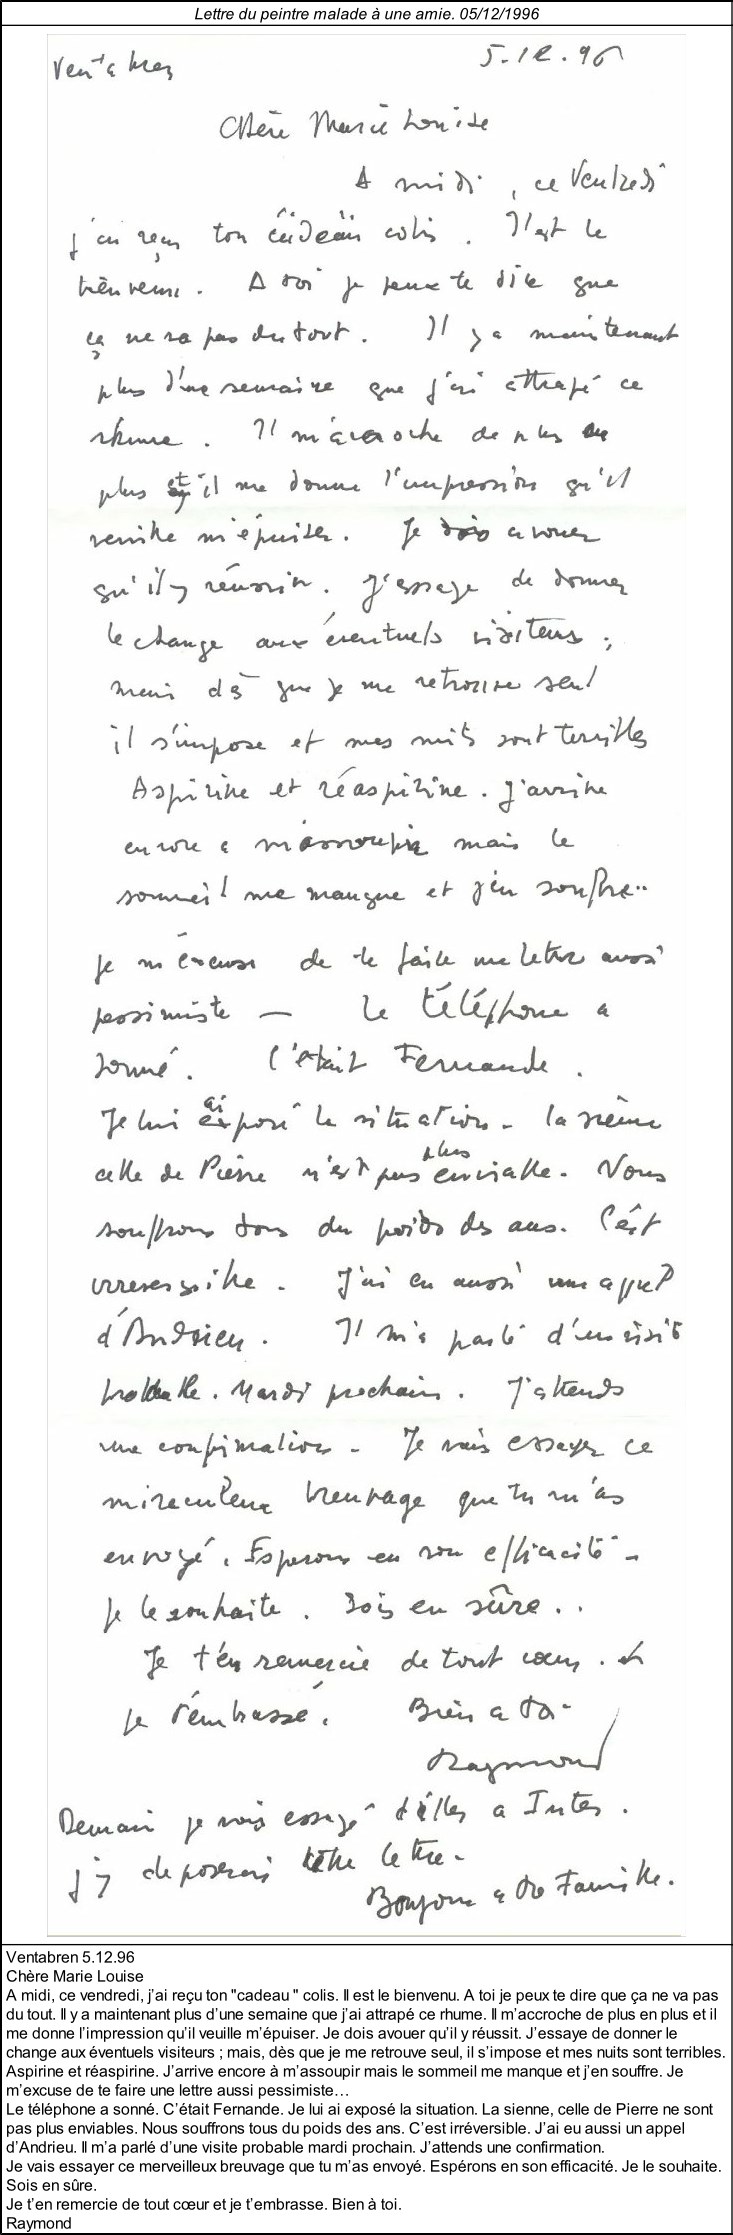 Lettre du peintre malade à une amie. 05/12/1996
Ventabren 5.12.96
Chère Marie Louise
A midi, ce Vendredi
j'ai reçu ton cadeau colis. Il est le
bienvenu. A toi je peux te dire que
ça ne va pas du tout. Il y a maintenant
plus d'une semaine que j'ai attrapé ce
rhume. Il m'accroche de plus en
plus et il me donne l'impression qu'il
veuille m'épuiser. Je dois avouer
qu'il y réussit. J'essaye de donner
le change aux éventuels visiteurs ;
mais dès que je me retrouve seul
il s'impose et mes nuits sont terribles
Aspirine et réaspirine. J'arrive
encore a m'assoupir mais le
sommeil me manque et j'en souffre..
je m'excuse de te faire une lettre aussi
pessimiste — Le téléphone a
sonné. C'était Fernande.
Je lui ai exposé la situation - la sienne
celle de Pierre n'est pas plus enviable. Nous
souffrons tous du poids des ans. C'est
irréversible. J'ai eu aussi un appel
d'Andrieu. Il m'a parlé d'une visite
probable. Mardi prochain. J'attends
une confirmation - Je vais essayer ce
miraculeux breuvage que tu m'as
envoyé. Esperons en son efficacité -
je le souhaite. Sois en sûre..
Je t'en remercie de tout cœur. et
je t'embrasse. Bien a toi -
Raymond
Demain je vais essayé d'aller a Inter.
j'y deposerai cette lettre -
Bonjour a ta Famille.
Ventabren 5.12.96
Chère Marie Louise
A midi, ce vendredi, j’ai reçu ton "cadeau " colis. Il est le bienvenu. A toi je peux te dire que ça ne va pas
du tout. Il y a maintenant plus d’une semaine que j’ai attrapé ce rhume. Il m’accroche de plus en plus et il
me donne l’impression qu’il veuille m’épuiser. Je dois avouer qu’il y réussit. J’essaye de donner le
change aux éventuels visiteurs ; mais, dès que je me retrouve seul, il s’impose et mes nuits sont terribles.
Aspirine et réaspirine. J’arrive encore à m’assoupir mais le sommeil me manque et j’en souffre. Je
m’excuse de te faire une lettre aussi pessimiste…
Le téléphone a sonné. C’était Fernande. Je lui ai exposé la situation. La sienne, celle de Pierre ne sont
pas plus enviables. Nous souffrons tous du poids des ans. C’est irréversible. J’ai eu aussi un appel
d’Andrieu. Il m’a parlé d’une visite probable mardi prochain. J’attends une confirmation.
Je vais essayer ce merveilleux breuvage que tu m’as envoyé. Espérons en son efficacité. Je le souhaite.
Sois en sûre.
Je t’en remercie de tout cœur et je t’embrasse. Bien à toi.
Raymond